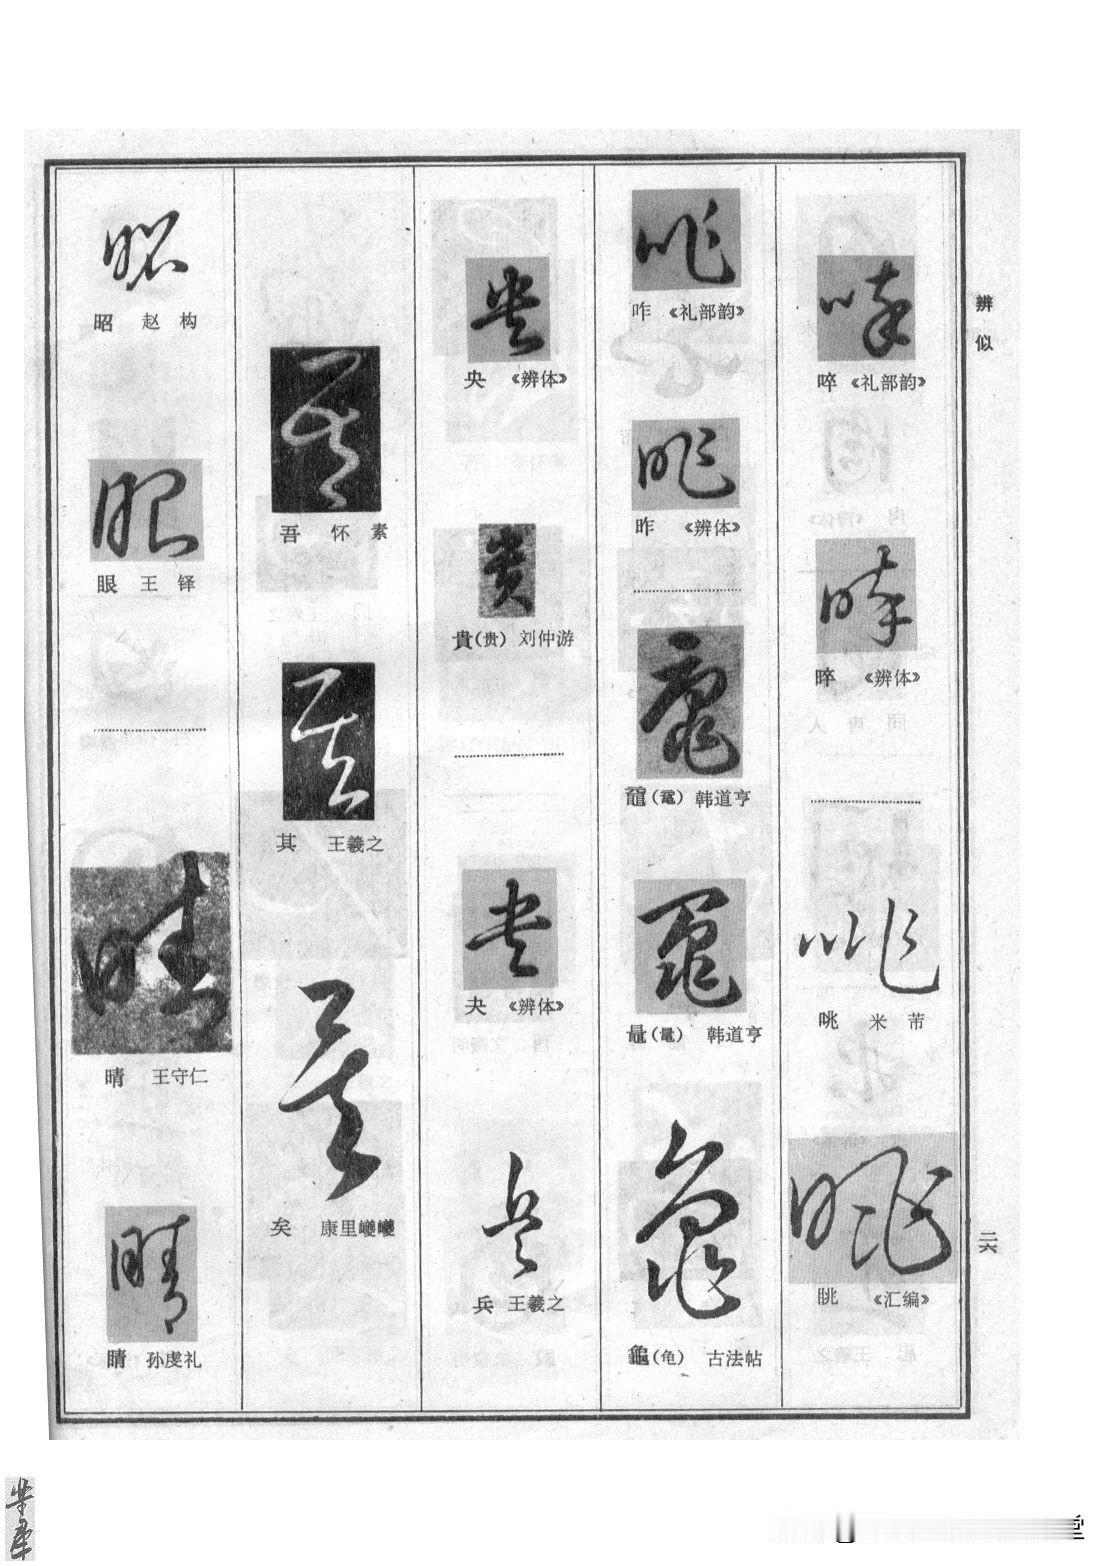 辨似
啐 《礼部韵》
晬 《辨体》
咣 米芾
眺 《汇编》
咋 《礼部韵》
昨 《辨体》
(鼋) 韩道亨
(鼌) 韩道亨
龜(龟) 古法帖
央 《辨体》
貴(贵) 刘仲游
夬 《辨体》
兵 王羲之
吾 怀素
其 王羲之
矣 康里巙巙
昭 赵构
眼 王铎
晴 王守仁
睛 孙虔礼
二六